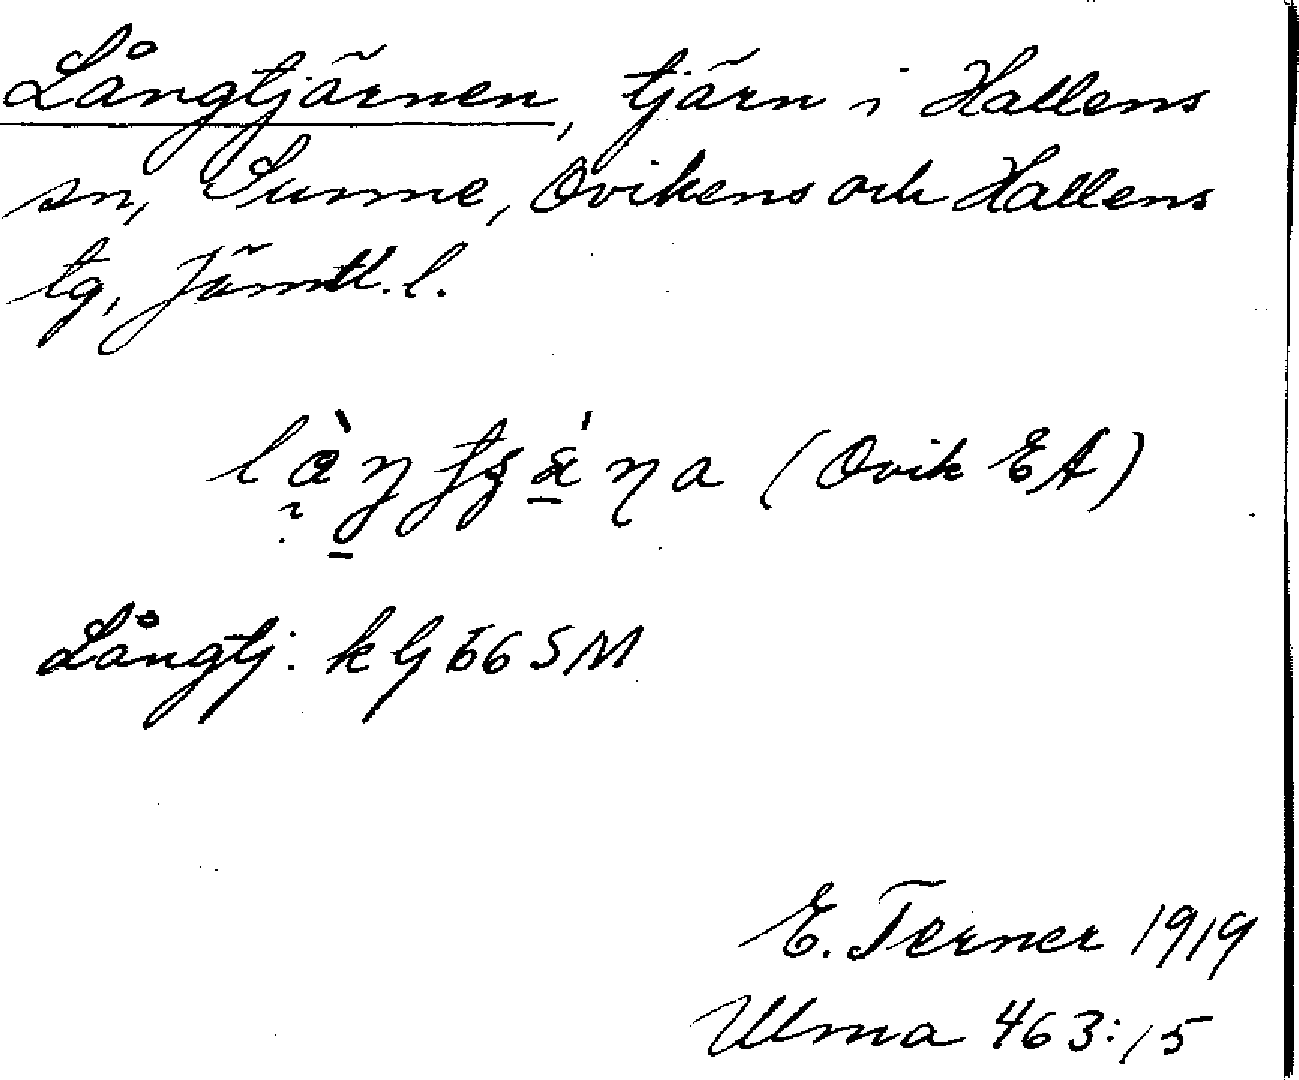 Långtjärnen, tjärn i Hallens
sn, Sunne, Ovikens och Hallens
tg, Jämtl. l.
(Ovik EA)
Långtj: k G 66 SM
E. Terner 1919
Ulma 463:15